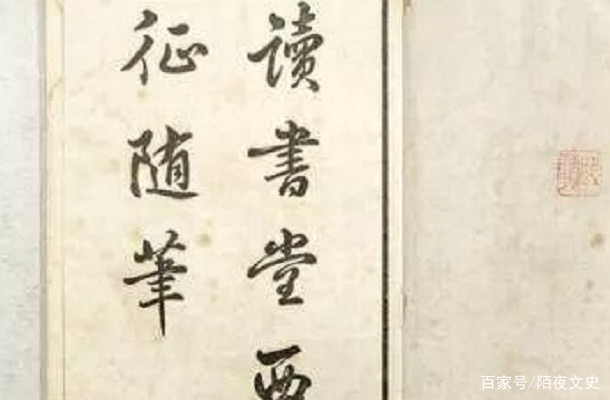 讀書堂西
征随筆
百家号/陌夜文史